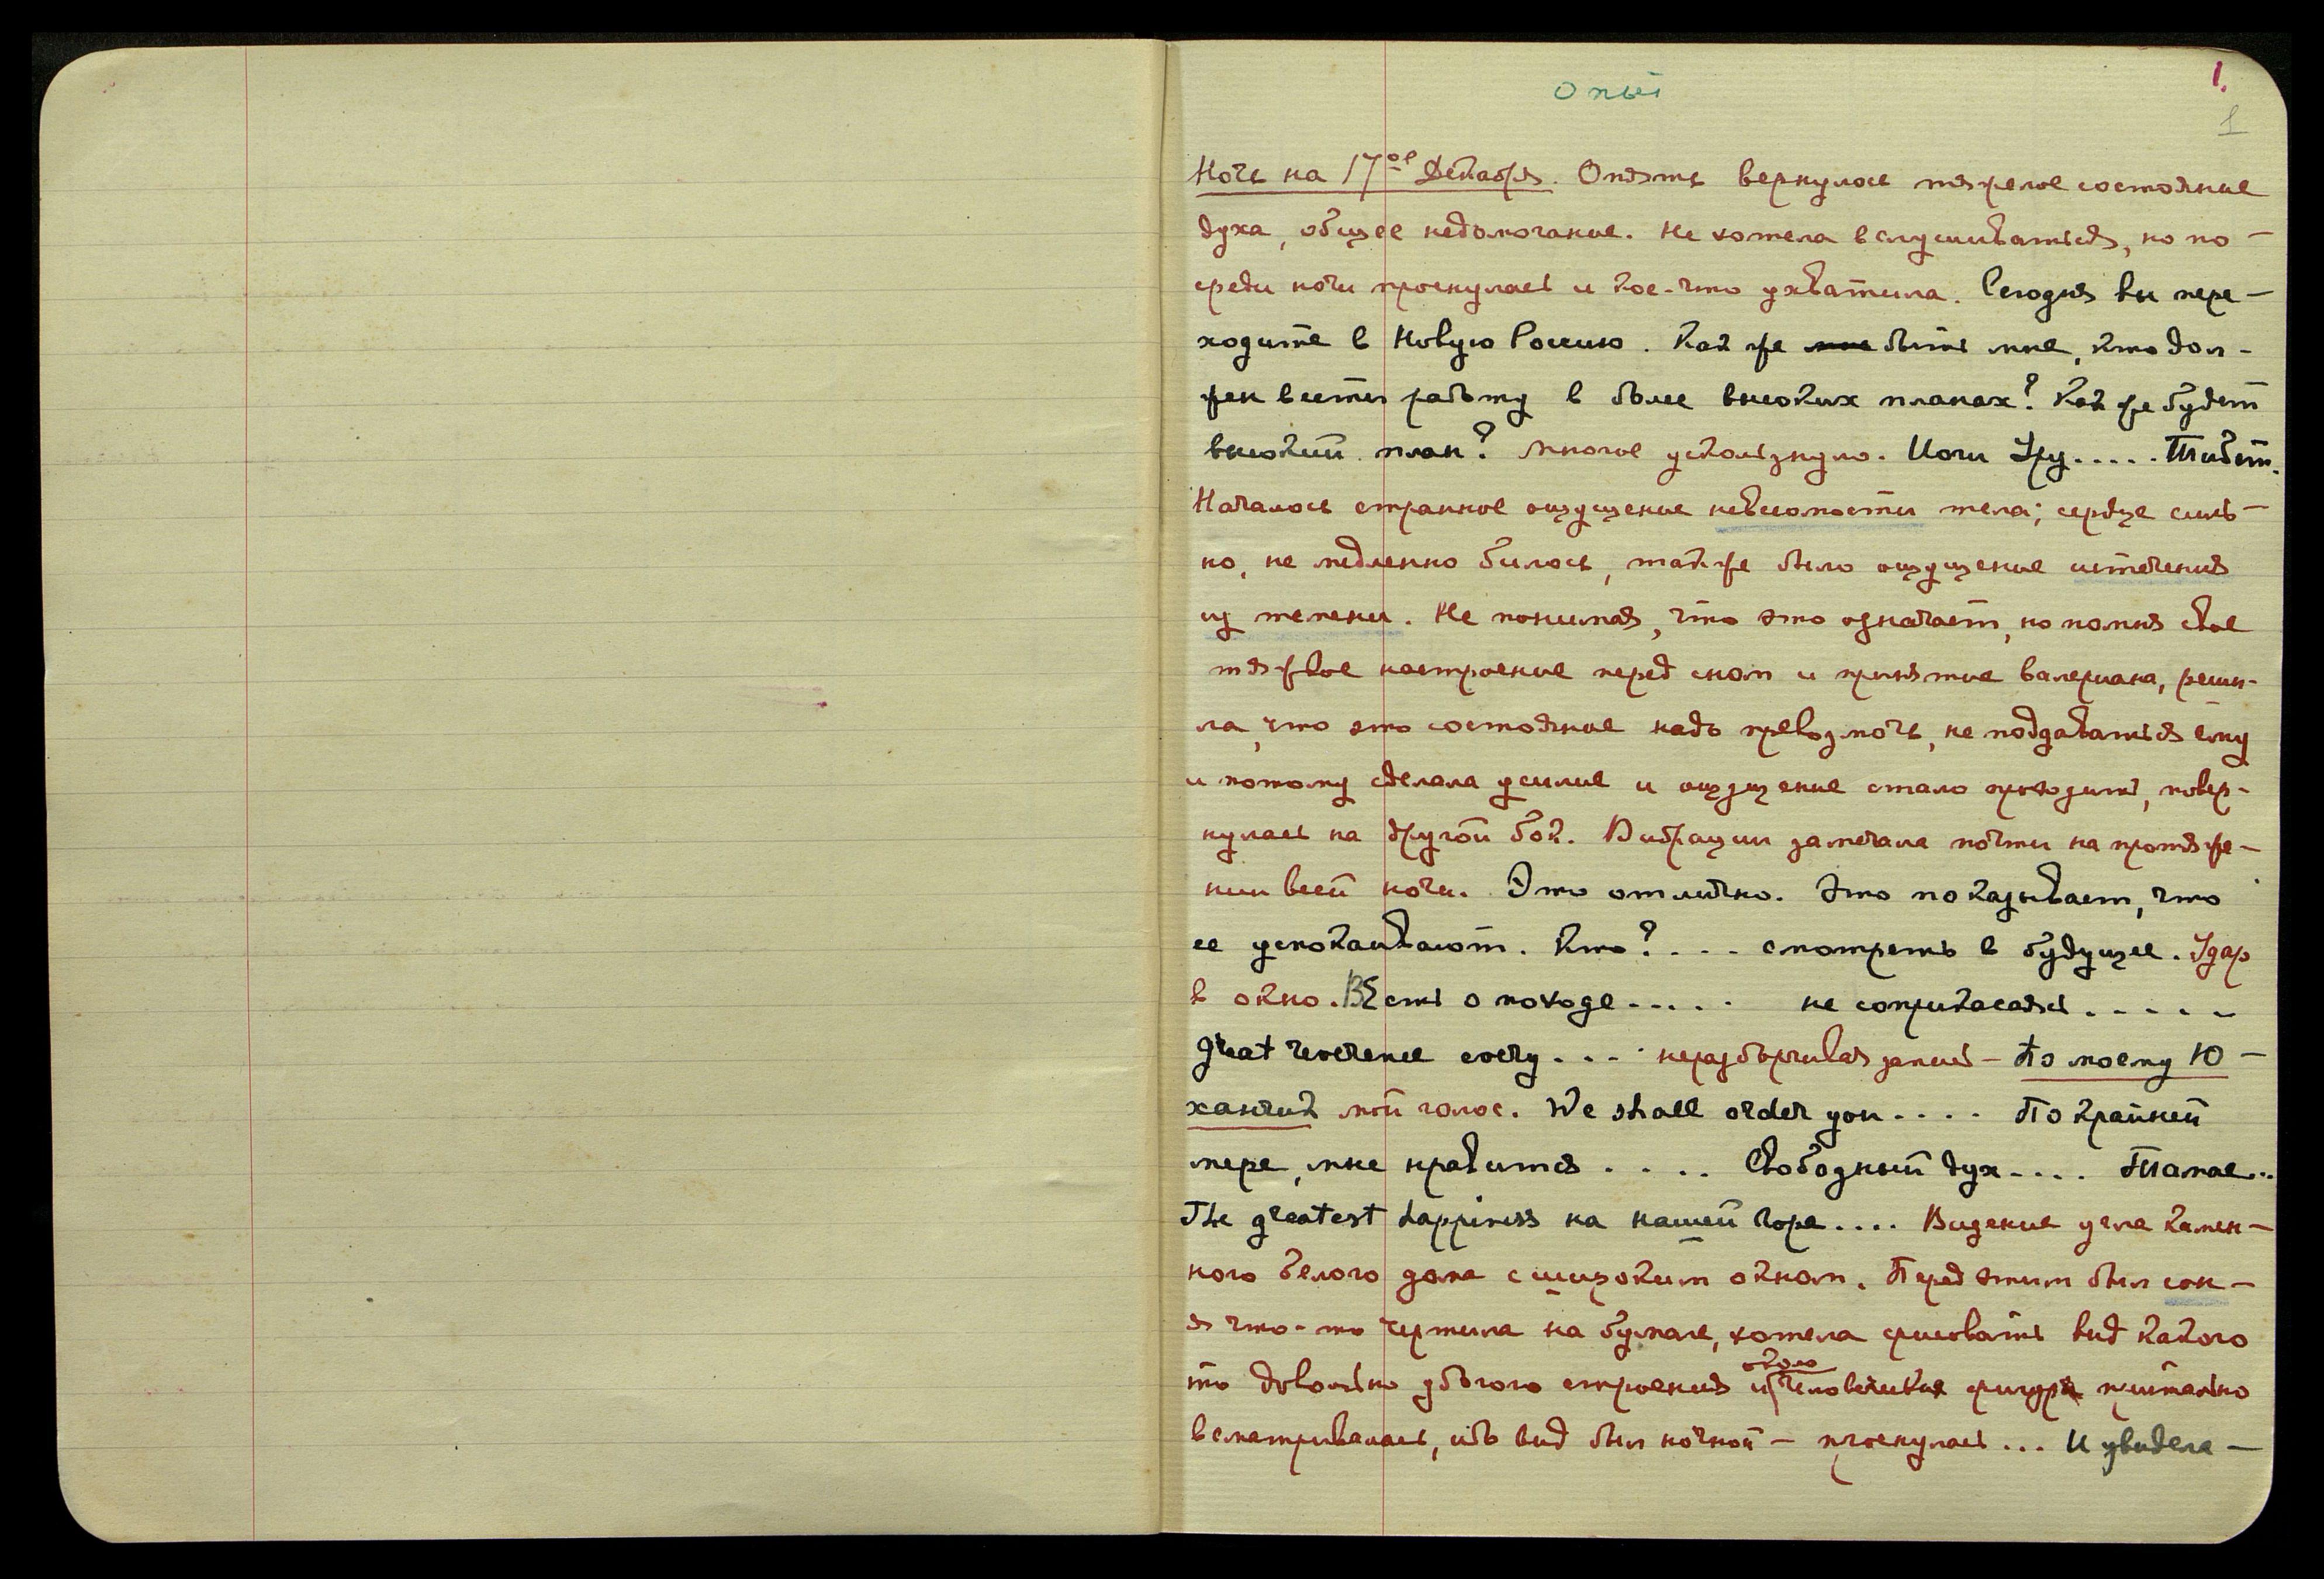 Опыт
1.
1
Ночь на 17ое Декабря. Опять вернулось тяжелое состояние
духа, общее недомогание. Не хотела вслушиваться, но по-
среди ночи проснулась и кое-что ухватила. Сегодня вы пере-
ходите в Новую Россию. Как же быть мне, кто дол-
жен вести работу в более высоких планах? Как же будет
высокий план? Многое ускользнуло. Йоги Уру..... Тибет.
Началось странное ощущение невесомости тела; сердце силь-
но, не медленно билось, также было ощущение истечения
из темени. Не понимая, что это означает, но помня свое
тяжкое настроение перед сном и принятие валериана, реши-
ла, что это состояние надо превозмочь, не поддаваться ему
и потому сделала усилие и ощущение стало проходить, повер-
нулась на другой бок. Вибрации замечала почти на протяже-
нии всей ночи. Это отлично. Это показывает, что
ее успокаивают. Кто?... смотреть в будущее. Удар
в окно. Весть о походе..... не соприкасаясь.....
great reverence every.... неразборчивая запись - По моему Ю-
ханчик мой голос. We shall order you.... По крайней
мере, мне нравится.... Свободный дух.... Там ..
The greatest happiness на нашей горе.... Видение угла камен-
ного белого дома с широким окном. Перед этим был сон -
я что-то чертила на бумаге, хотела срисовать вид какого
то довольно убогого строения и около человеческая фигура пристально
всматривалась, ибо вид был ночной - проснулась... И увидела -